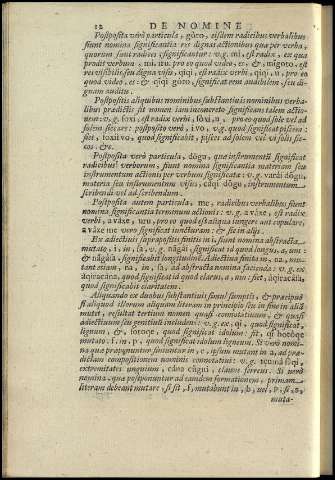 12 DE NOMINE
Postposita verò particula, gòto, eisdem radicibus verbalibus
fiunt nomina significantia res dignas actionibus quæ per verba,
quorum sunt radices significantur: v. g. mi, est radix, ex qua
prodit verbum, mi, ru, pro eo quod video, es, & migoto, est
res visibilis, seu digna visu, qiqi, est radix verbi, qiqi, u, pro eo
quod video, es, & qiqigoto, significat rem audibilem, seu di-
gnam auditu.
Postpositis aliquibus nominibus substantiuis nominibus verba-
libus prædictis fit nomen significans talem actio-
nem: v. g. foxi, est radix verbi, fòxi, u, pro eo quod sole vel ad
solem siccare: postposito verò, ivo, quod significat pisces:
fiet, foxiivo, quod significat, pisces ad solem vel vi solis sic-
cos: &c.
Postposita verò particula, dògu, quæ instrumentũ significat
radicibus verborum, fiunt nomina significantia materiam seu
instrumentum actionum per verbum significatæ: v. g. vardi dògu,
materia seu instrumentum visus, càqi dògu, instrumentum
scribendi vel ad scribendum.
Postposita autem particula, me, radicibus verbalibus fiunt
nomina significantia terminum actionis: v. g. avàxe, est radix
verbi, avàxe, uru, pro eo quod est aliqua iungere aut copulare,
avàxe me verò significat iuncturam: & sic in alijs.
Ex adiectiuis suprapositis finitis in, i, fiunt nomina abstracta
mutato, i, in, sa, v. g. nàgài, significat id quod longus, a, um:
& nàgàsa, significabit longitudinẽ. Adiectiua finita in, na, mu-
tant etiam, na, in, sa, ad abstracta nomina facienda: v. g. ex
aqiracàna, quod significat id quod clarus, a, um: fiet, aqiracàsa,
quod significat claritatem.
Aliquando ex duobus substantiuis simul sumptis, & præcipuè
si aliquod illorum aliquam literam in principio siue in fine in aliã
mutet, resultat tertium nomen quasi connotatiuum, & quasi
adiectiuum seu genitiuũ includens: v. g. ex, qi, quod significat,
lignum, &, fotoqe, quod significat idolum: fit, qi botòqe
mutato, f, in, b, quod significat idolum ligneum. Si verò nomi-
na quæ præponuntur finiuntur in, e, ipsum mutant in a, ad præ-
dictam compositionem nominis connotatiui: v. g.
extremitates unguium, càna cùgui, clauus ferreus. Si verò
nomina, quæ postponuntur ad eandem formationem, primam
literam debeant mutare, si sit, f, mutabunt in, b, vel, p, si, s,
muta-